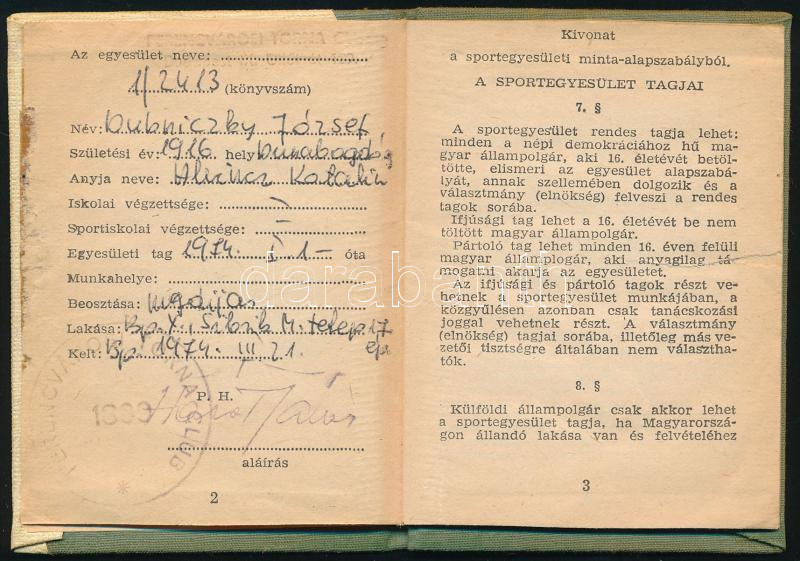 Az egyesület neve:
1/2413 (könyvszám)
Név: Dubniczky József
Születési év: 1916 hely Dunabogdány
Anyja neve: Katalin
Iskolai végzettsége: —
Sportiskolai végzettsége: —
Egyesületi tag 1974. I. 1- óta
Munkahelye:
Beosztása: nyugdíjas
Lakása: Bp. X., M. telep 17
Kelt: Bp. 1974. III. 21. ép.
P. H.
1899
aláírás
2
Kivonat
a sportegyesületi minta-alapszabályból.
A SPORTEGYESÜLET TAGJAI
7. §
A sportegyesület rendes tagja lehet:
minden a népi demokráciához hű ma-
gyar állampolgár, aki 16. életévét betöl-
tötte, elismeri az egyesület alapszabá-
lyát, annak szellemében dolgozik és a
választmány (elnökség) felveszi a rendes
tagok sorába.
Ifjúsági tag lehet a 16. életévét be nem
töltött magyar állampolgár.
Pártoló tag lehet minden 16. éven felüli
magyar államplogár, aki anyagilag tá-
mogatni akarja az egyesületet.
Az ifjúsági és pártoló tagok részt ve-
hetnek a sportegyesület munkájában, a
közgyűlésen azonban csak tanácskozási
joggal vehetnek részt. A választmány
(elnökség) tagjai sorába, illetőleg más ve-
zetői tisztségre általában nem választha-
tók.
8. §
Külföldi állampolgár csak akkor lehet
a sportegyesület tagja, ha Magyarorszá-
gon állandó lakása van és felvételéhez
3
darabanth.com